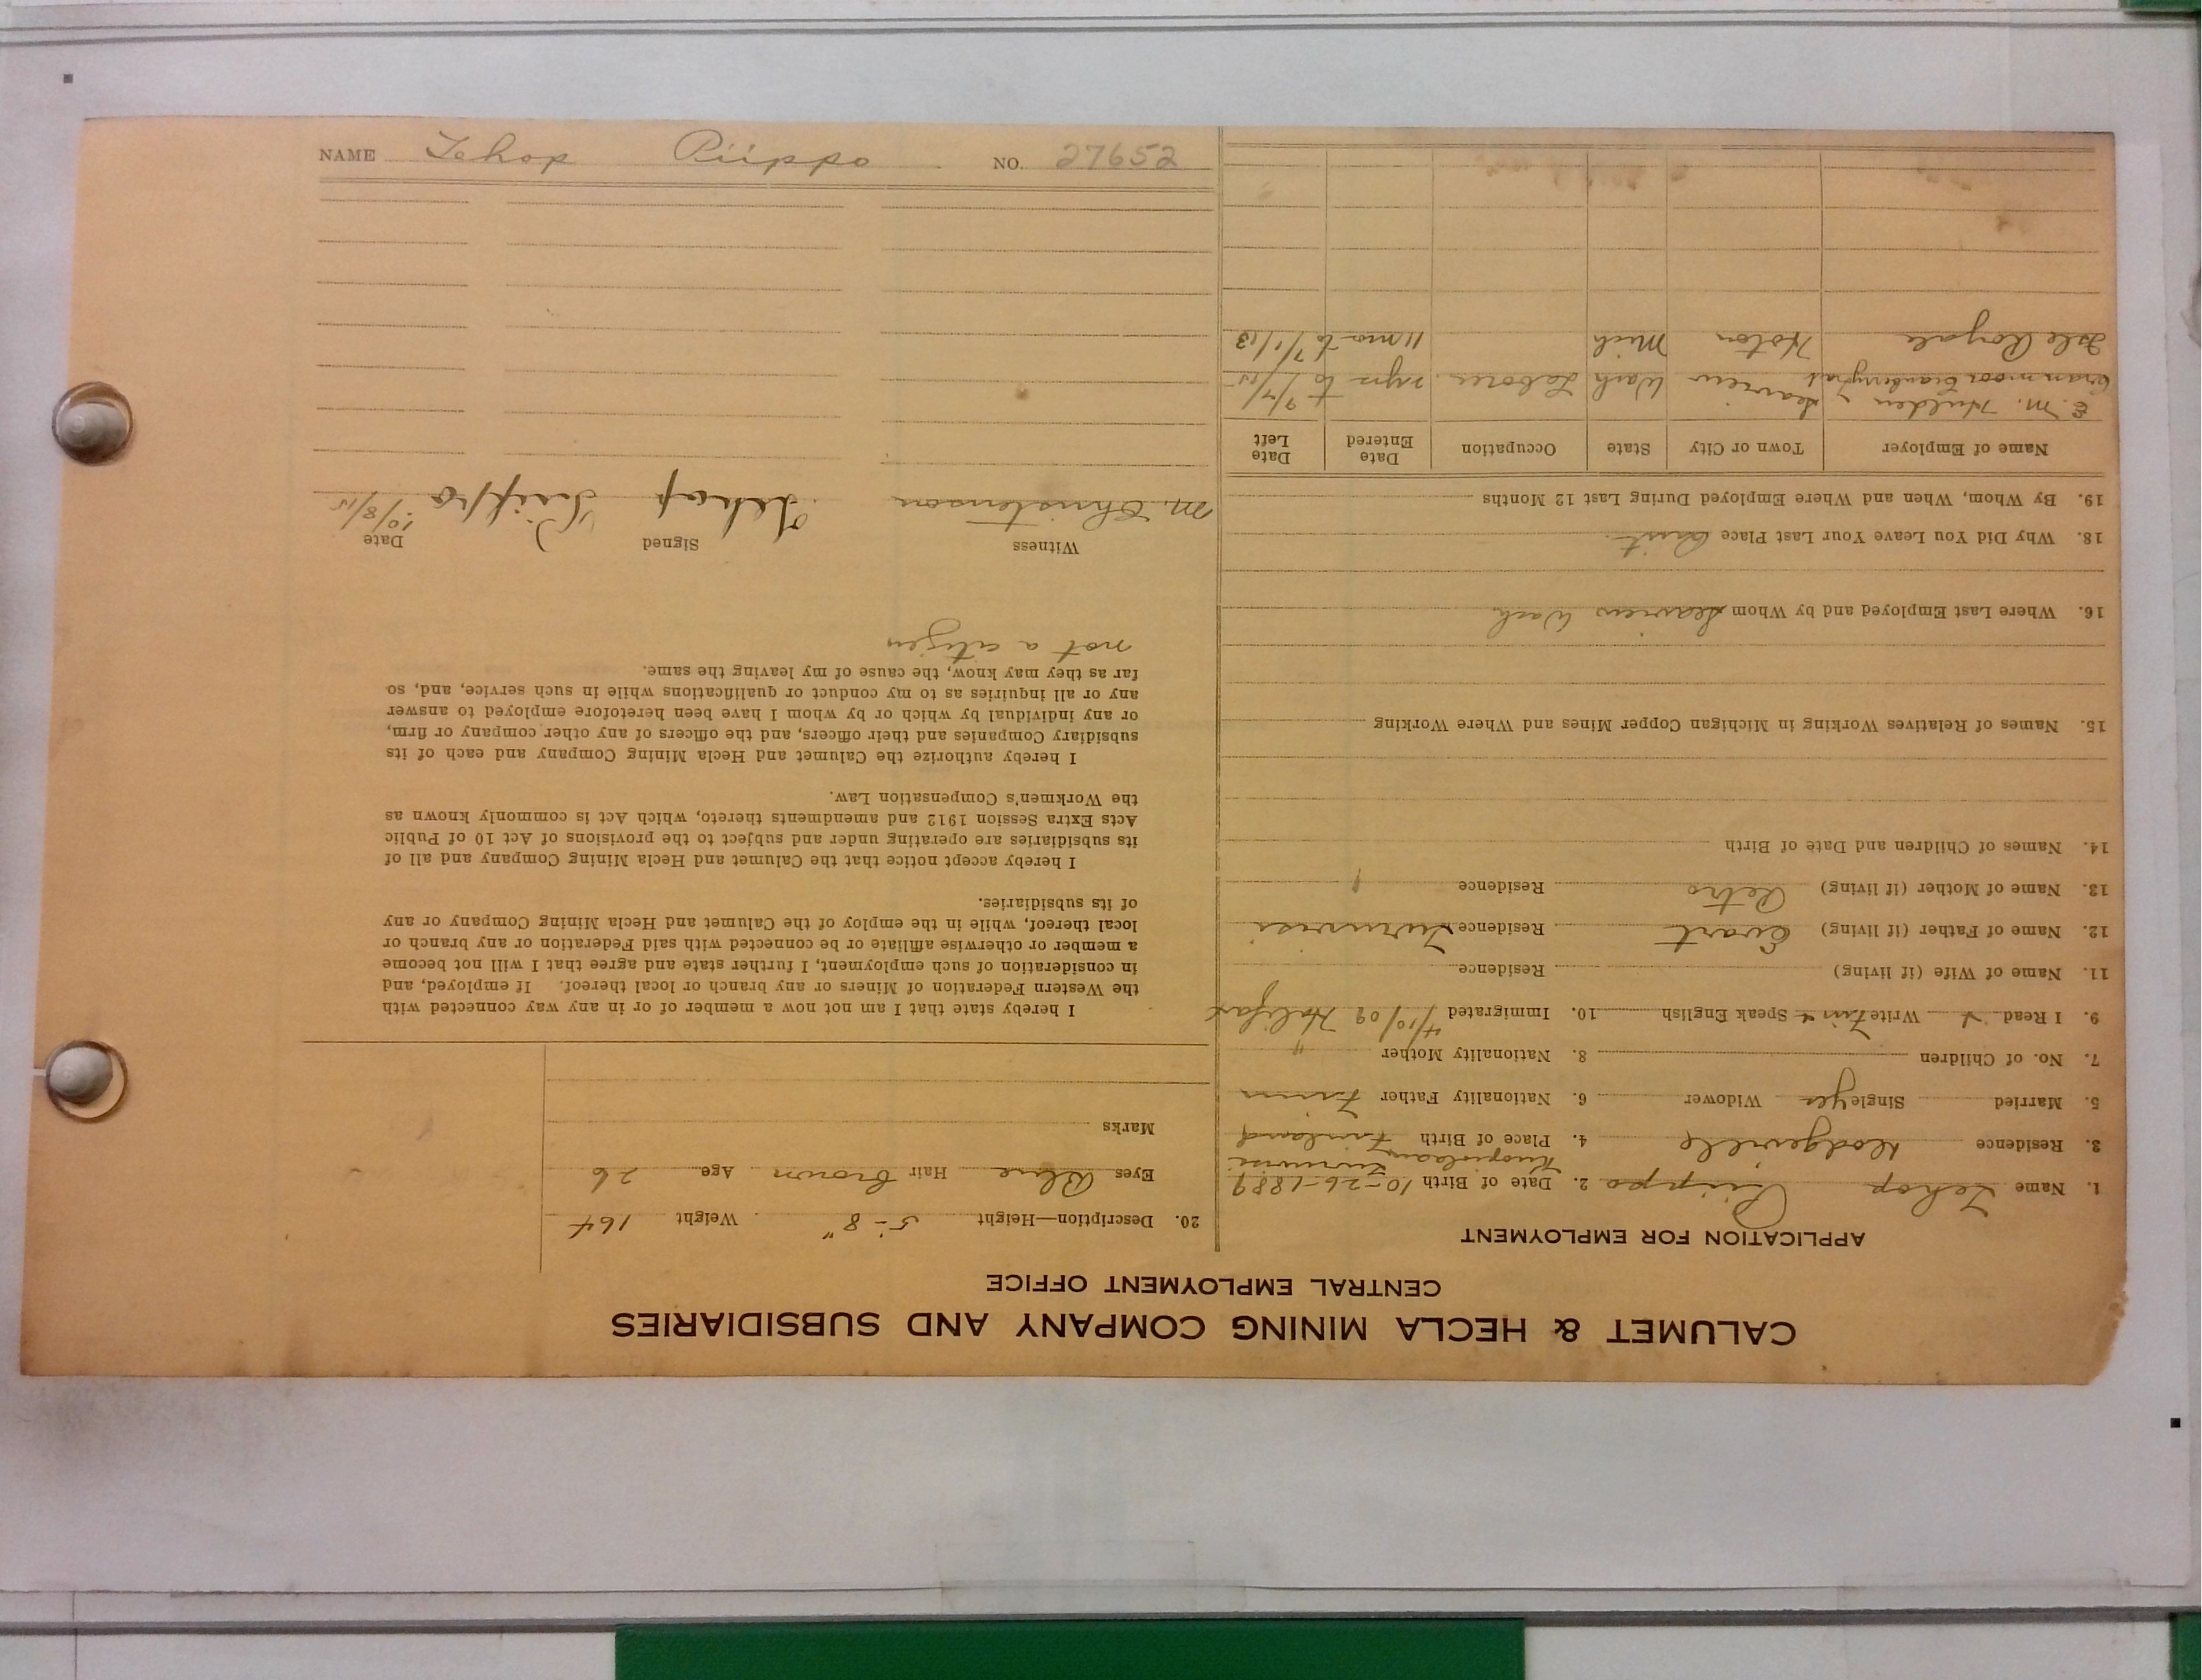 NAME Tehop Piippo NO. 27652
CALUMET & HECLA MINING COMPANY AND SUBSIDIARIES
CENTRAL EMPLOYMENT OFFICE
APPLICATION FOR EMPLOYMENT
1. Name Tehop Piippo 2. Date of Birth 10-26-1889
3. Residence Dodgeville 4. Place of Birth Finland
5. Married Single yes Widower 6. Nationality Father Finn
7. No. of Children 8. Nationality Mother "
9. I Read Write Finn Speak English 10. Immigrated 4/10/09 Halifax
11. Name of Wife (if living) Residence
12. Name of Father (if living) Evart Residence
13. Name of Mother (if living) Residence
14. Names of Children and Date of Birth
15. Names of Relatives Working in Michigan Copper Mines and Where Working
16. Where Last Employed and by Whom Seaview Wash
18. Why Did You Leave Your Last Place Quit
19. By Whom, When and Where Employed During Last 12 Months
Name of Employer Town or City State Occupation Date Entered Date Left
E. M. Hulden
Cranmoor Seaview Wash Laborer 2 yrs to 9/7/15
Isle Royale Hoton Mich 11 mo to 7/1/13
20. Description—Height 5'-8" Weight 164
Eyes Blue Hair Brown Age 26
Marks
I hereby state that I am not now a member of or in any way connected with
the Western Federation of Miners or any branch or local thereof. If employed, and
in consideration of such employment, I further state and agree that I will not become
a member or otherwise affiliate or be connected with said Federation or any branch or
local thereof, while in the employ of the Calumet and Hecla Mining Company or any
of its subsidiaries.
I hereby accept notice that the Calumet and Hecla Mining Company and all of
its subsidiaries are operating under and subject to the provisions of Act 10 of Public
Acts Extra Session 1912 and amendments thereto, which Act is commonly known as
the Workmen's Compensation Law.
I hereby authorize the Calumet and Hecla Mining Company and each of its
subsidiary Companies and their officers, and the officers of any other company or firm,
or any individual by which or by whom I have been heretofore employed to answer
any or all inquiries as to my conduct or qualifications while in such service, and, so
far as they may know, the cause of my leaving the same.
not a citizen
Witness Signed Date
M. Christenson Tehop Piippo 10/8/15